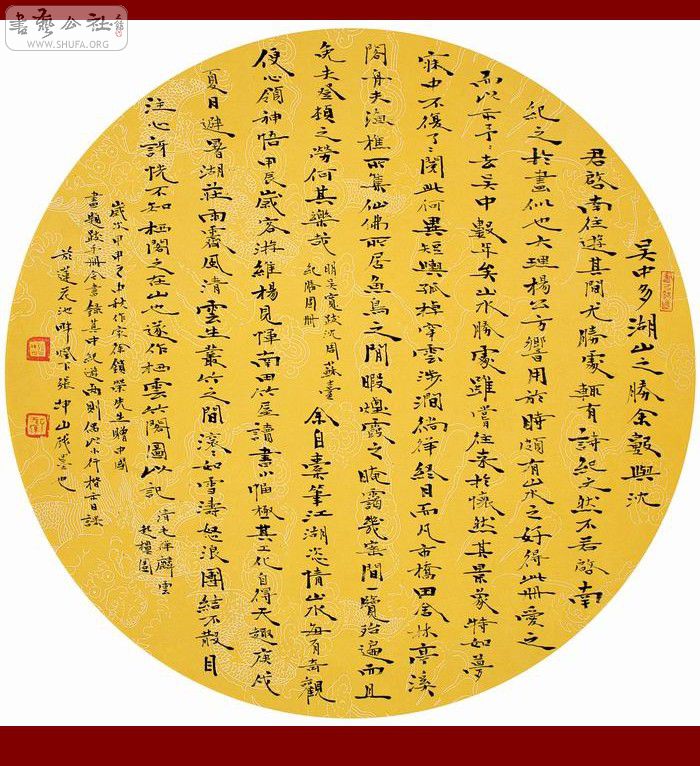 書藝公社
WWW.SHUFA.ORG
吳中多湖山之勝余數與沈
君啓南往遊其間尤勝處輒有詩紀之然不若啟南
紀之於畫似也大理楊公方響用於時頗有山水之好得此册愛之
而以示予々去吳中數年矣山水勝處雖嘗往來於懷然其景象特如夢
寐中不復了々閲此何異短輿孤棹穿雲涉澗徜徉終日而凡市橋田舍林亭溪
閣舟夫漁樵所集仙佛所居魚鳥之閒暇煙霞之晻靄幾案間一覽殆遍而且
免夫登頓之勞何其樂哉 明吳寬跋沈周蘇臺
紀勝圖册 余自橐筆江湖恣情山水每有奇觀
便心領神悟甲辰歲客游維楊見惲南田竹屋讀書小幅極其工化自得天趣庚戌
夏日避暑湖莊雨霽風清雲生叢竹之間滾々如雪濤怒浪團結不散目
注心訝恍不知栖閣之在山也遂作栖雲竹閣圖以記 清
歲次甲申之秋作家徐鎖榮先生贈中國
畫題跋手册今書錄其中紀遊兩則
於蓮花池畔燈下張坤山